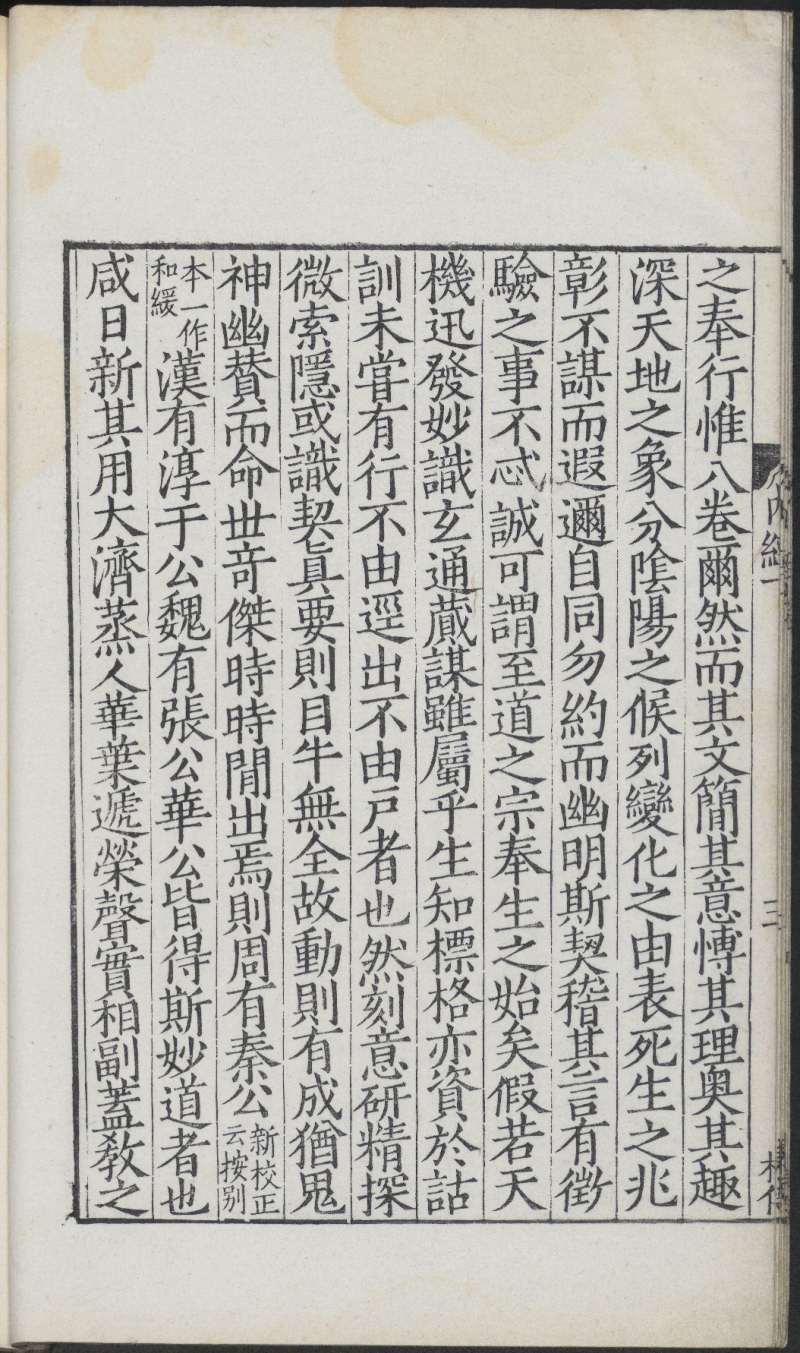 內經一 三
之奉行惟八卷爾然而其文簡其意愽其理奧其趣
深天地之象分陰陽之候列變化之由表死生之兆
彰不謀而遐邇自同勿約而幽明斯契稽其言有徵
驗之事不忒誠可謂至道之宗奉生之始矣假若天
機迅發妙識玄通蕆謀雖屬乎生知標格亦資於詁
訓未嘗有行不由逕出不由戶者也然刻意研精探
微索隱或識契眞要則目牛無全故動則有成猶鬼
神幽賛而命世奇傑時時閒出焉則周有秦公新校正云按别
本一作和緩漢有淳于公魏有張公華公皆得斯妙道者也
咸日新其用大濟蒸人華葉遞榮聲實相副蓋敎之